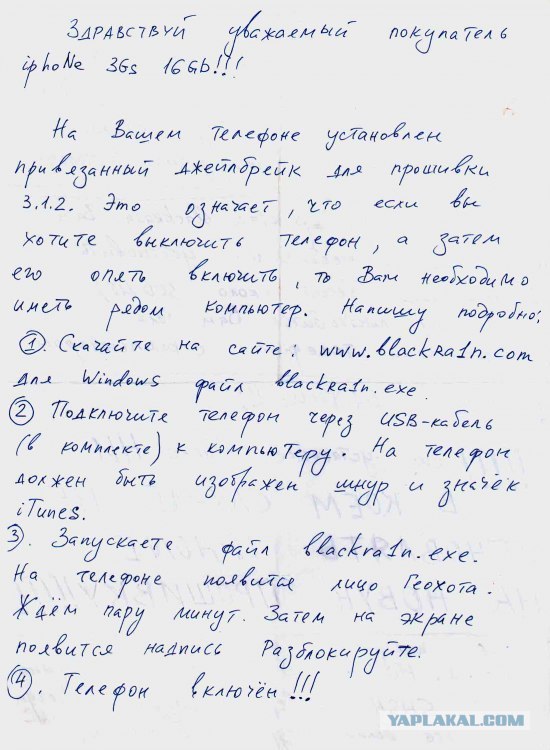 Здравствуй уважаемый покупатель
iphoNe 3Gs 16Gb!!!
На Вашем телефоне установлен
привязанный джейлбрейк для прошивки
3.1.2. Это означает, что если вы
хотите выключить телефон, а затем
его опять включить, то Вам необходимо
иметь рядом компьютер. Напишу подробно:
① Скачайте на сайте: www.blackra1n.com
для Windows файл blackra1n.exe.
② Подключите телефон через USB-кабель
(в комплекте) к компьютеру. На телефон
должен быть изображен шнур и значек
iTunes.
3. Запускаете файл blackra1n.exe.
На телефоне появится лицо Геохота.
Ждём пару минут. Затем на экране
появится надпись Разблокируйте.
④. Телефон включён!!!
YAPLAKAL.COM